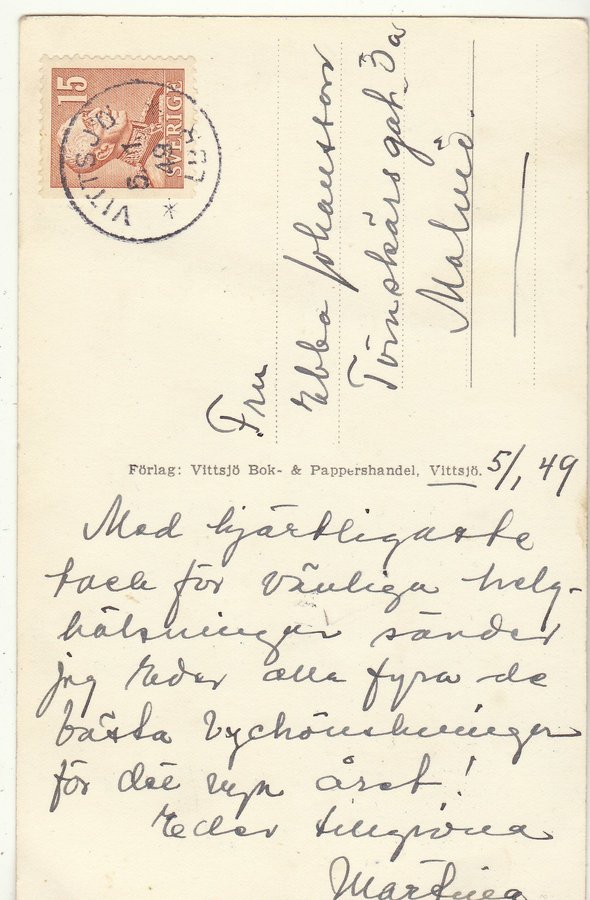 15
SVERIGE
VITTSJÖ
5.1.
49
Fru
Ebba Johansson
Törnskärsgat. 3a
Malmö.
Förlag: Vittsjö Bok- & Pappershandel, Vittsjö.
5/1 49
Med hjärtligaste
tack för vänliga helg-
hälsningar sänder
jag Eder alla fyra de
bästa lyckönskningar
för det nya året!
Eder tillgivna